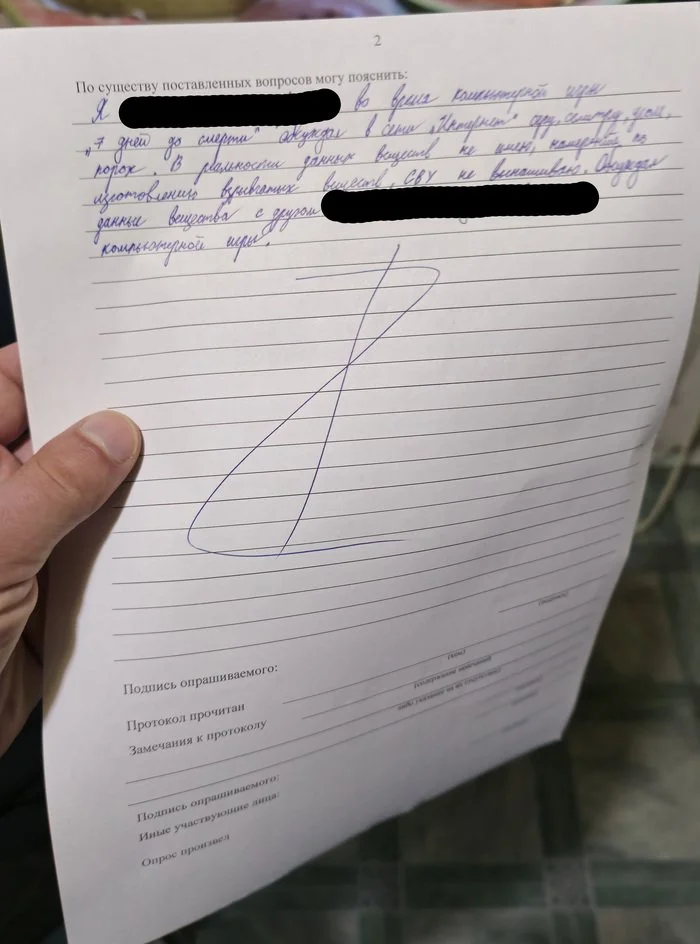 2
По существу поставленных вопросов могу пояснить:
Я во время компьютерной игры
„7 дней до смерти" обсуждал в сети „Интернет" руду, селитру, уголь,
порох. В реальности данных веществ не имею, намерений по
изготовлению взрывчатых веществ, СВУ не вынашиваю. Обсуждал
данные вещества с другом
компьютерной игры.
(подпись)
Подпись опрашиваемого:
(кем)
Протокол прочитан
(содержание замечаний
Замечания к протоколу
либо указание на их отсутствие)
Подпись опрашиваемого:
Иные участвующие лица:
Опрос произвел